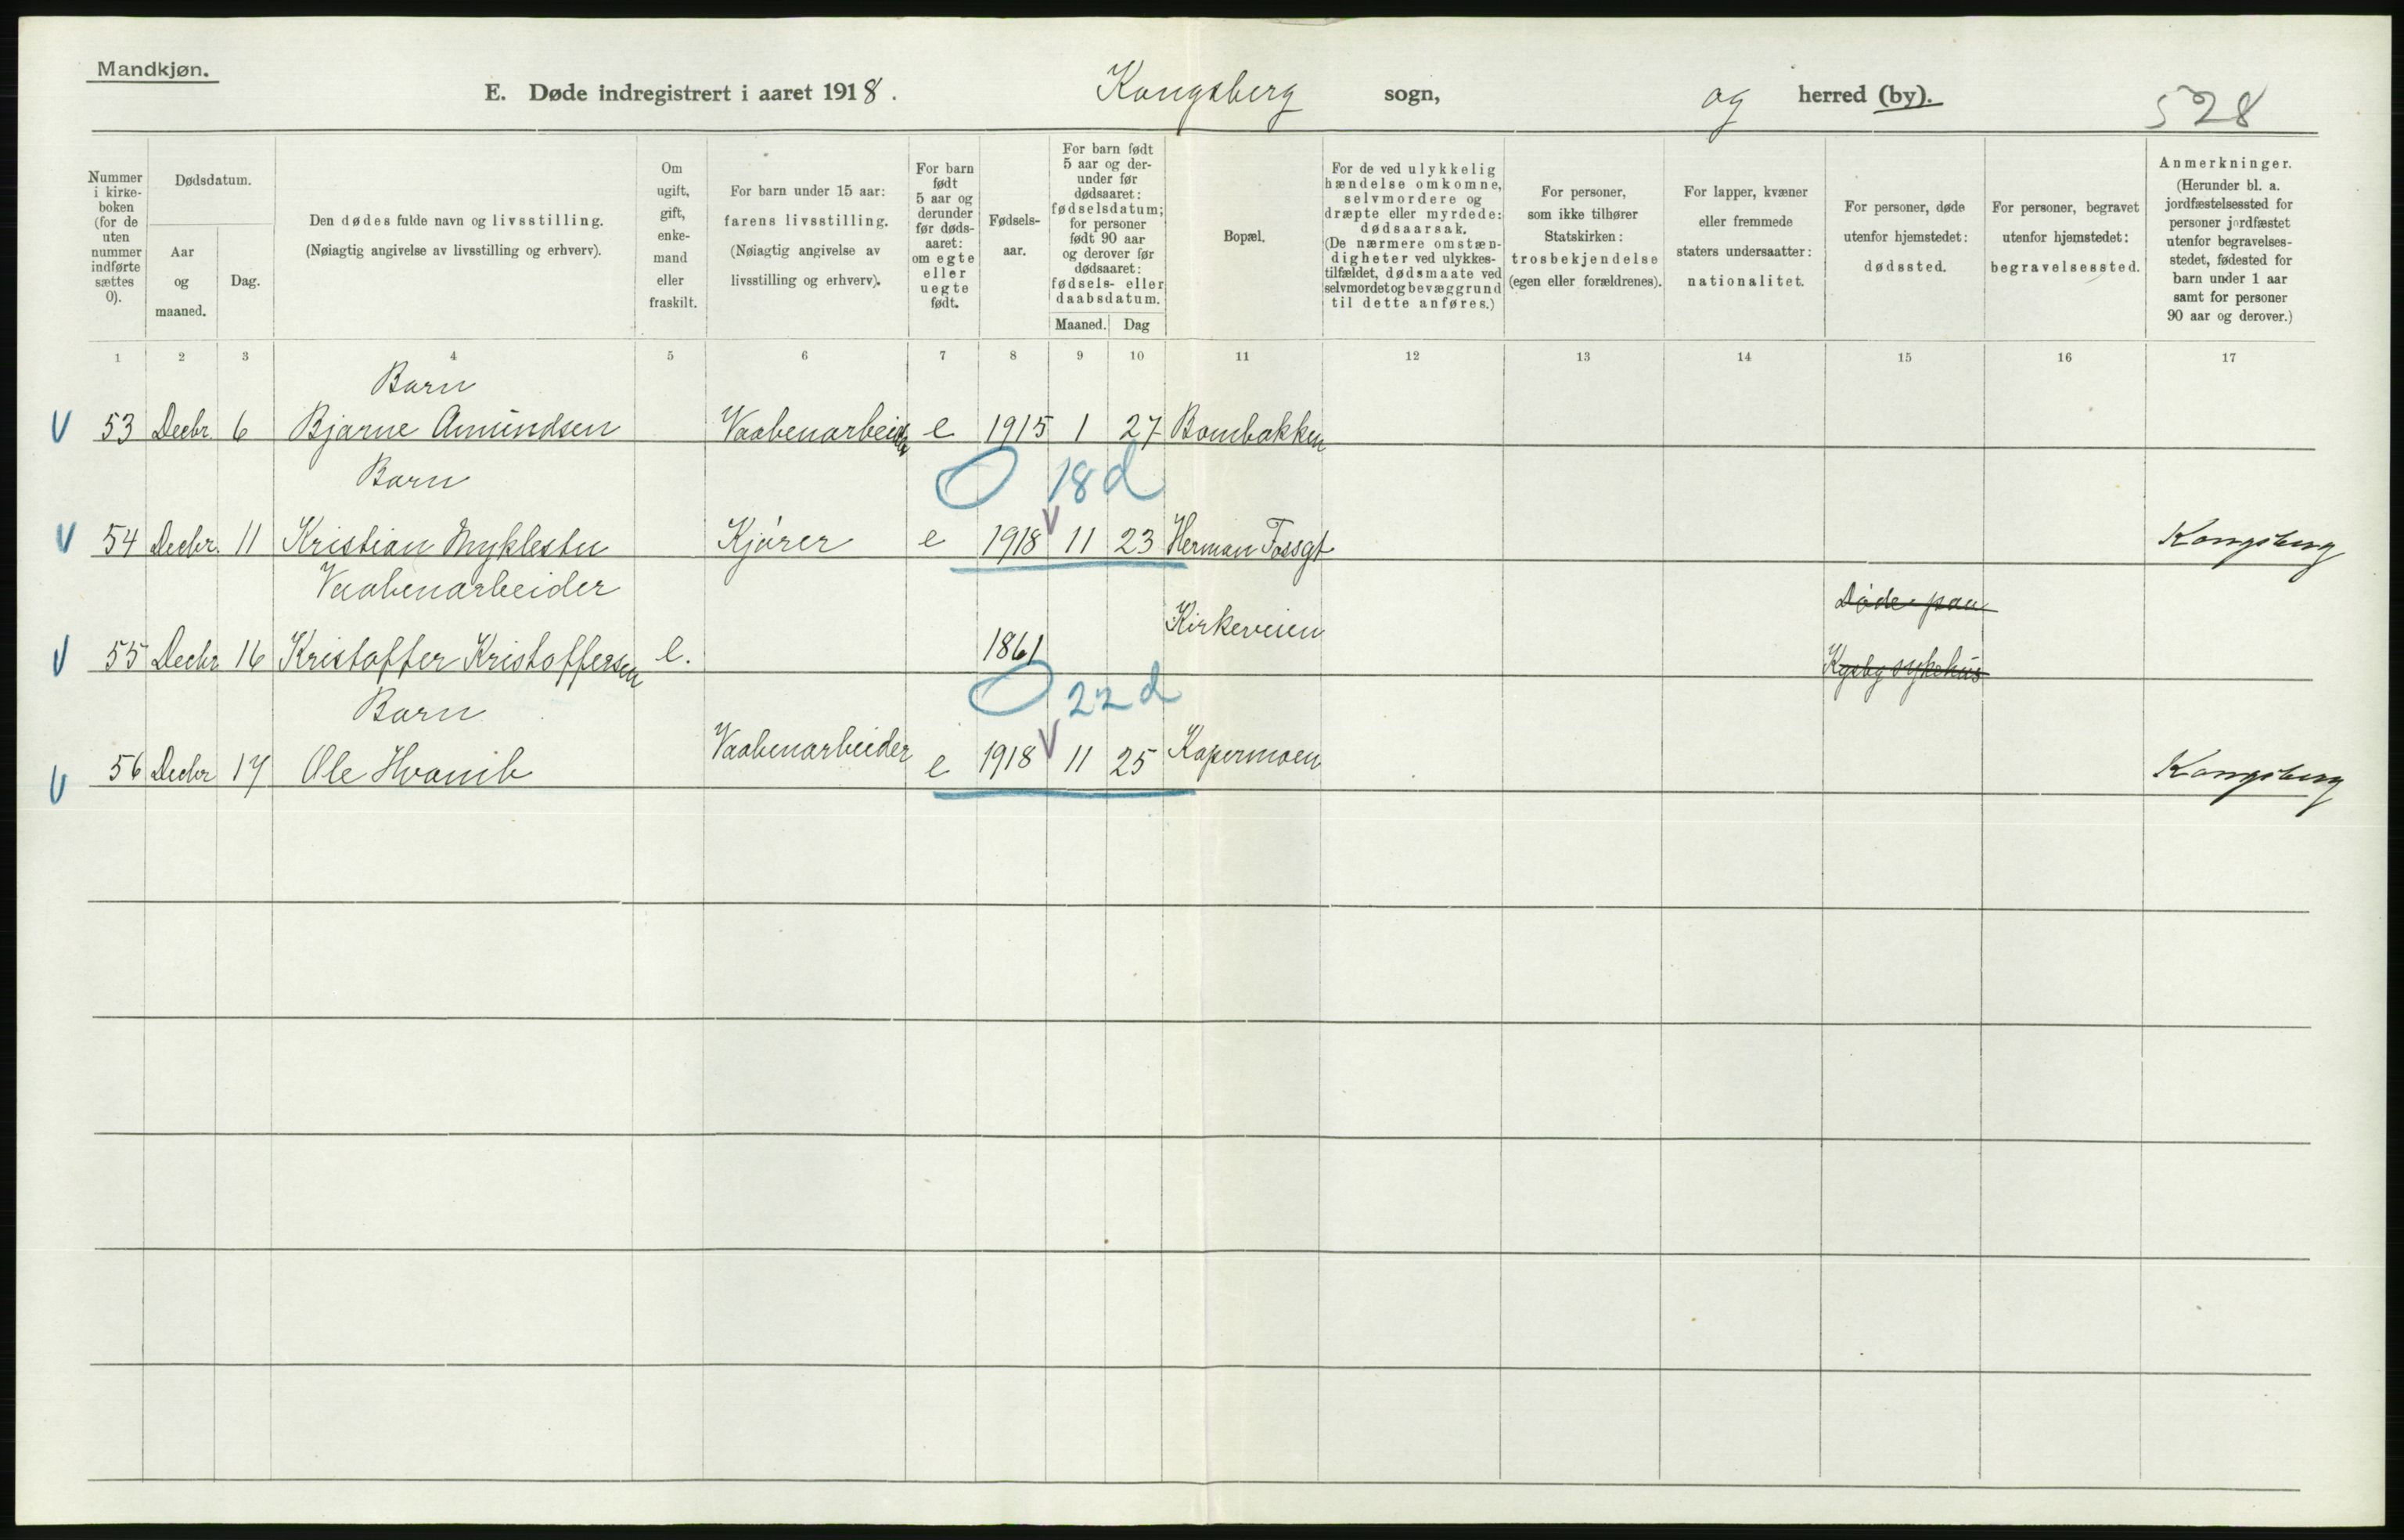 Mandkjøn.
E. Døde indregistrert i aaret 1918. Kongsberg sogn, og herred (by). 528
Nummer i kirkeboken (for de uten nummer indførte sættes 0).
Dødsdatum.
Aar og maaned.
Dag.
Den dødes fulde navn og livsstilling.
(Nøiagtig angivelse av livsstilling og erhverv).
Om ugift, gift, enkemand eller fraskilt.
For barn under 15 aar: farens livsstilling. (Nøiagtig angivelse av livsstilling og erhverv).
For barn født 5 aar og derunder før dødsaaret: om egte eller uegte født.
Fødselsaar.
For barn født 5 aar og derunder før dødsaaret: fødselsdatum; for personer født 90 aar og derover før dødsaaret: fødsels- eller daabsdatum.
Maaned. Dag
Bopæl.
For de ved ulykkelig hændelse omkomne, selvmordere og dræpte eller myrdede: dødsaarsak. (De nærmere omstændigheter ved ulykkestilfældet, dødsmaate ved selvmordet og bevæggrund til dette anføres.)
For personer, som ikke tilhører Statskirken: trosbekjendelse (egen eller forældrenes).
For lapper, kvæner eller fremmede staters undersaatter: nationalitet.
For personer, døde utenfor hjemstedet: dødssted.
For personer, begravet utenfor hjemstedet: begravelsessted.
Anmerkninger. (Herunder bl. a. jordfæstelsessted for personer jordfæstet utenfor begravelsesstedet, fødested for barn under 1 aar samt for personer 90 aar og derover.)
1 2 3 4 5 6 7 8 9 10 11 12 13 14 15 16 17
Barn
V 53 Decbr 6 Bjarne Amundsen Vaabenarbeider e 1915 1 27 Bombakken
Barn
O 18 d
V 54 Decbr. 11 Kristian Myklestu Kjører e 1918 V 11 23 Herman Fossgt Kongsberg
Vaabenarbeider
Kirkeveien Døde paa
V 55 Decbr 16 Kristoffer Kristoffersen e. 1861 Kgsbg sykehus
Barn
O 22 d
V 56 Decbr 17 Ole Hvamb Vaabenarbeider e 1918 V 11 25 Kapermoen Kongsberg